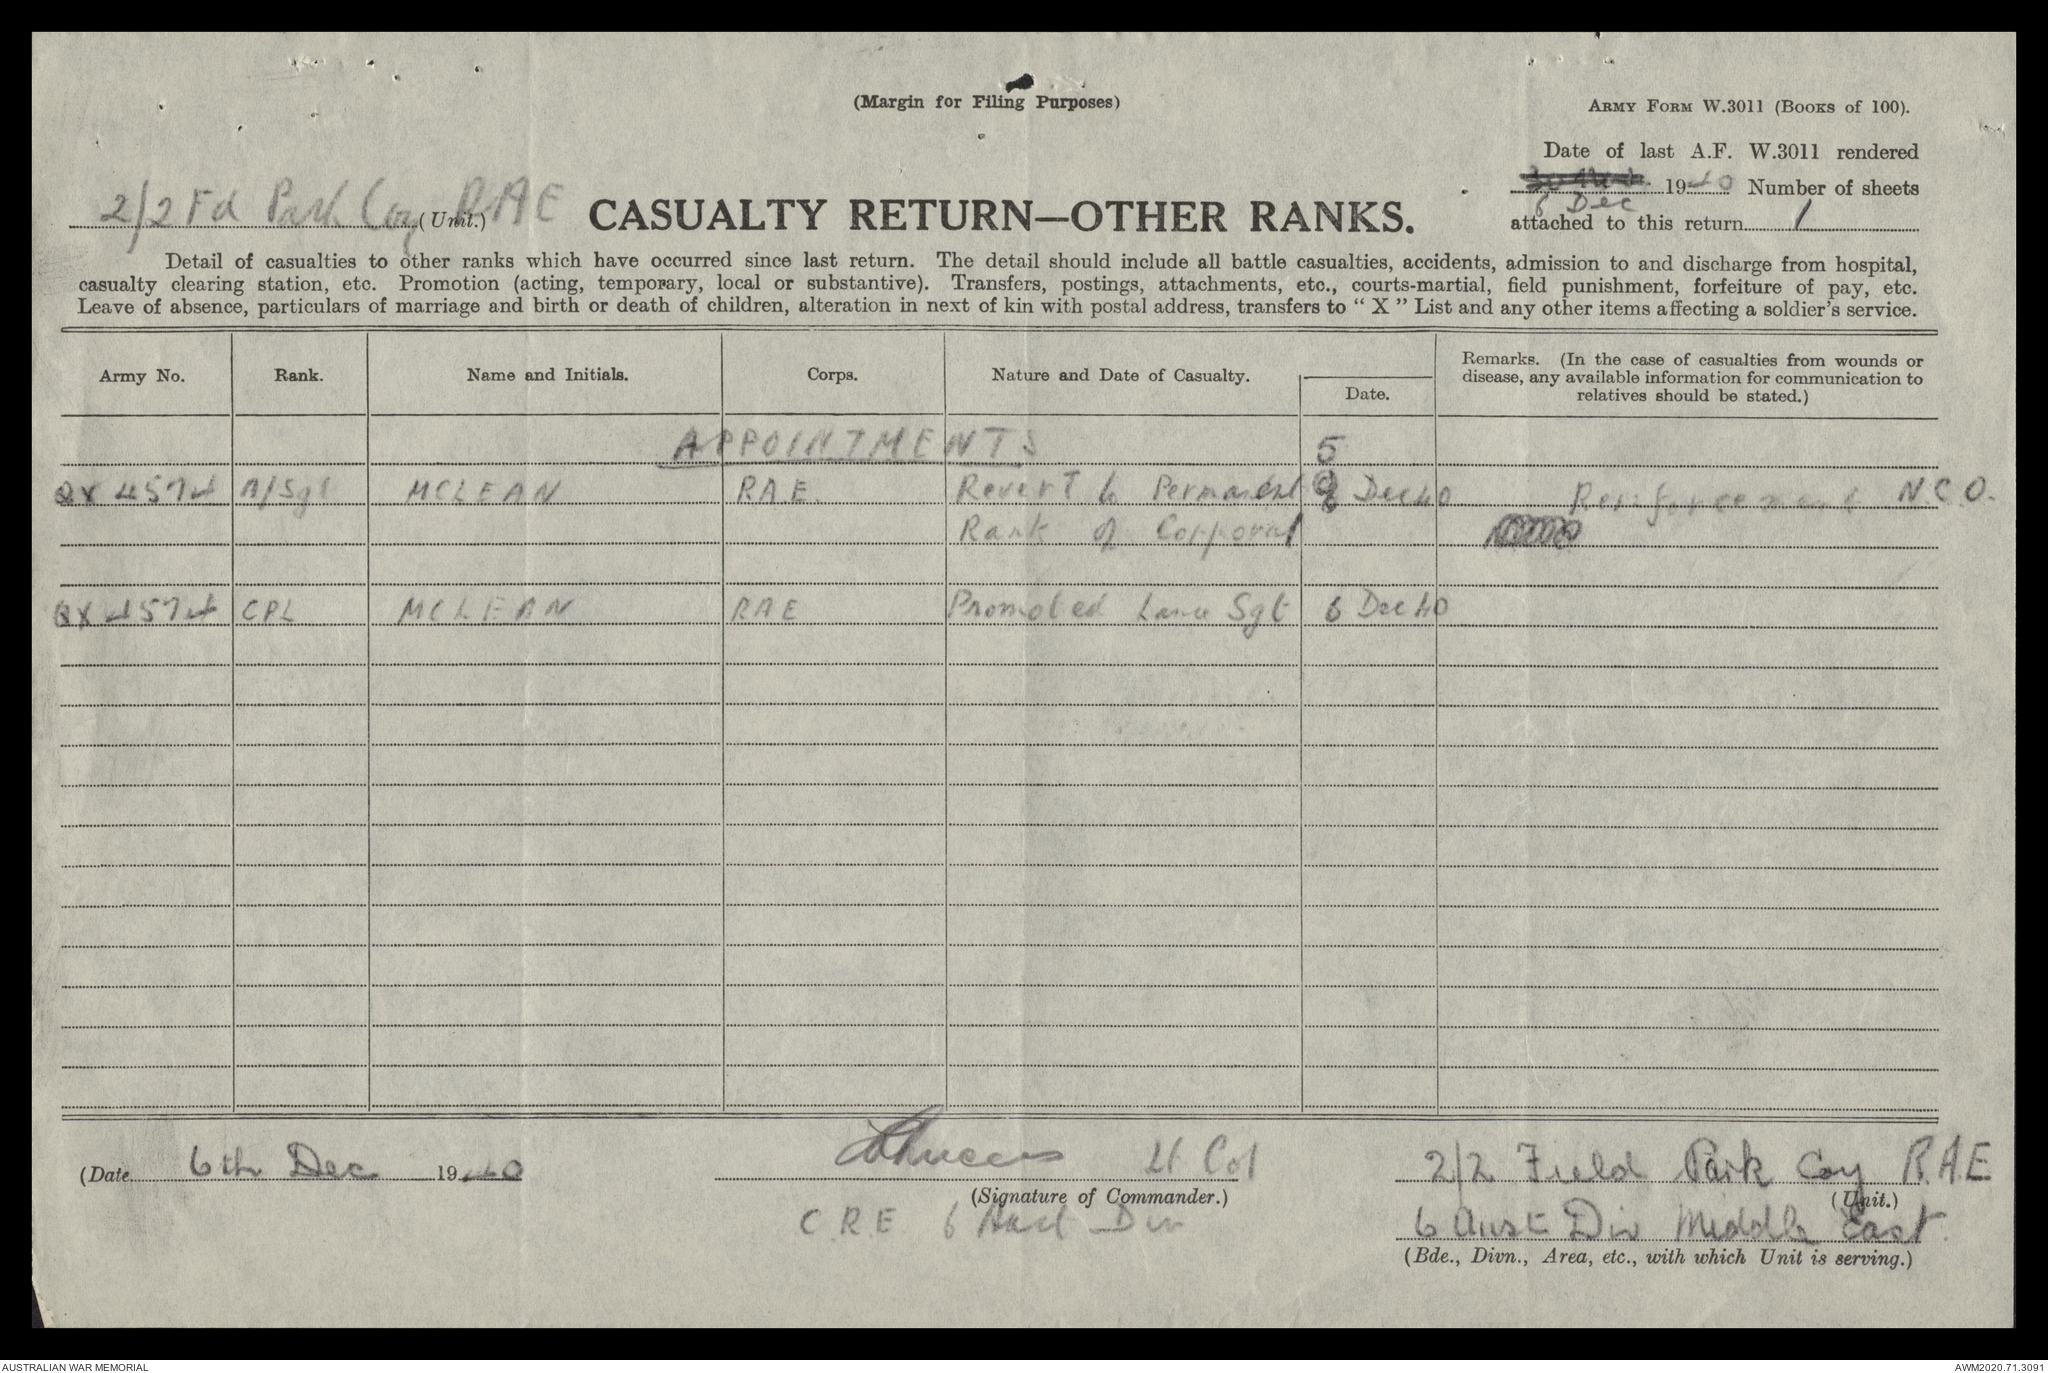 (Margin for Filing Purposes)
ARMY FORM W.3011 (BOOKS of 100).
Date of last A.F. W.3011 rendered
1940 Number of sheets
6 Dec
attached to this return 1
2/2 Fd Park Coy RAE (Unit.)
CASUALTY RETURN—OTHER RANKS.
Detail of casualties to other ranks which have occurred since last return. The detail should include all battle casualties, accidents, admission to and discharge from hospital,
casualty clearing station, etc. Promotion (acting, temporary, local or substantive). Transfers, postings, attachments, etc., courts-martial, field punishment, forfeiture of pay, etc.
Leave of absence, particulars of marriage and birth or death of children, alteration in next of kin with postal address, transfers to "X" List and any other items affecting a soldier's service.
Army No. Rank. Name and Initials. Corps. Nature and Date of Casualty. Date. Remarks. (In the case of casualties from wounds or
disease, any available information for communication to
relatives should be stated.)
APPOINTMENTS 5
QX 4574 A/Sgt MCLEAN RAE. Revert to Permanent Dec 40 Reinforcement N.C.O.
Rank of Corporal
QX 4574 CPL MCLEAN RAE Promoted Lance Sgt 6 Dec 40
(Date 6th Dec 1940
Lt Col
(Signature of Commander.)
C.R.E 6 Aust Div
2/2 Field Park Coy R.A.E
(Unit.)
6 Aust Div Middle East.
(Bde., Divn., Area, etc., with which Unit is serving.)
AUSTRALIAN WAR MEMORIAL
AWM2020.71.3091